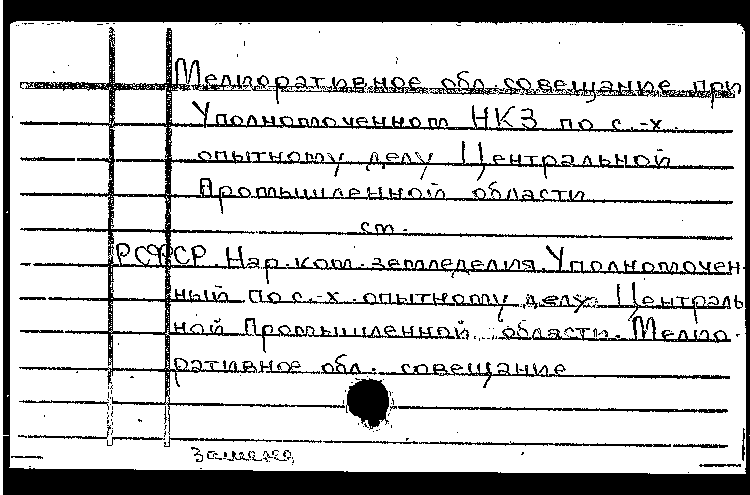 Мелиоративное обл. совещание при
Уполномоченном НКЗ по с.-х.
опытному делу Центральной
Промышленной области
см.
РСФСР. Нар. ком. земледелия. Уполномочен-
ный по с.-х. опытному делу Централь-
ной Промышленной области. Мелио-
ративное обл. совещание